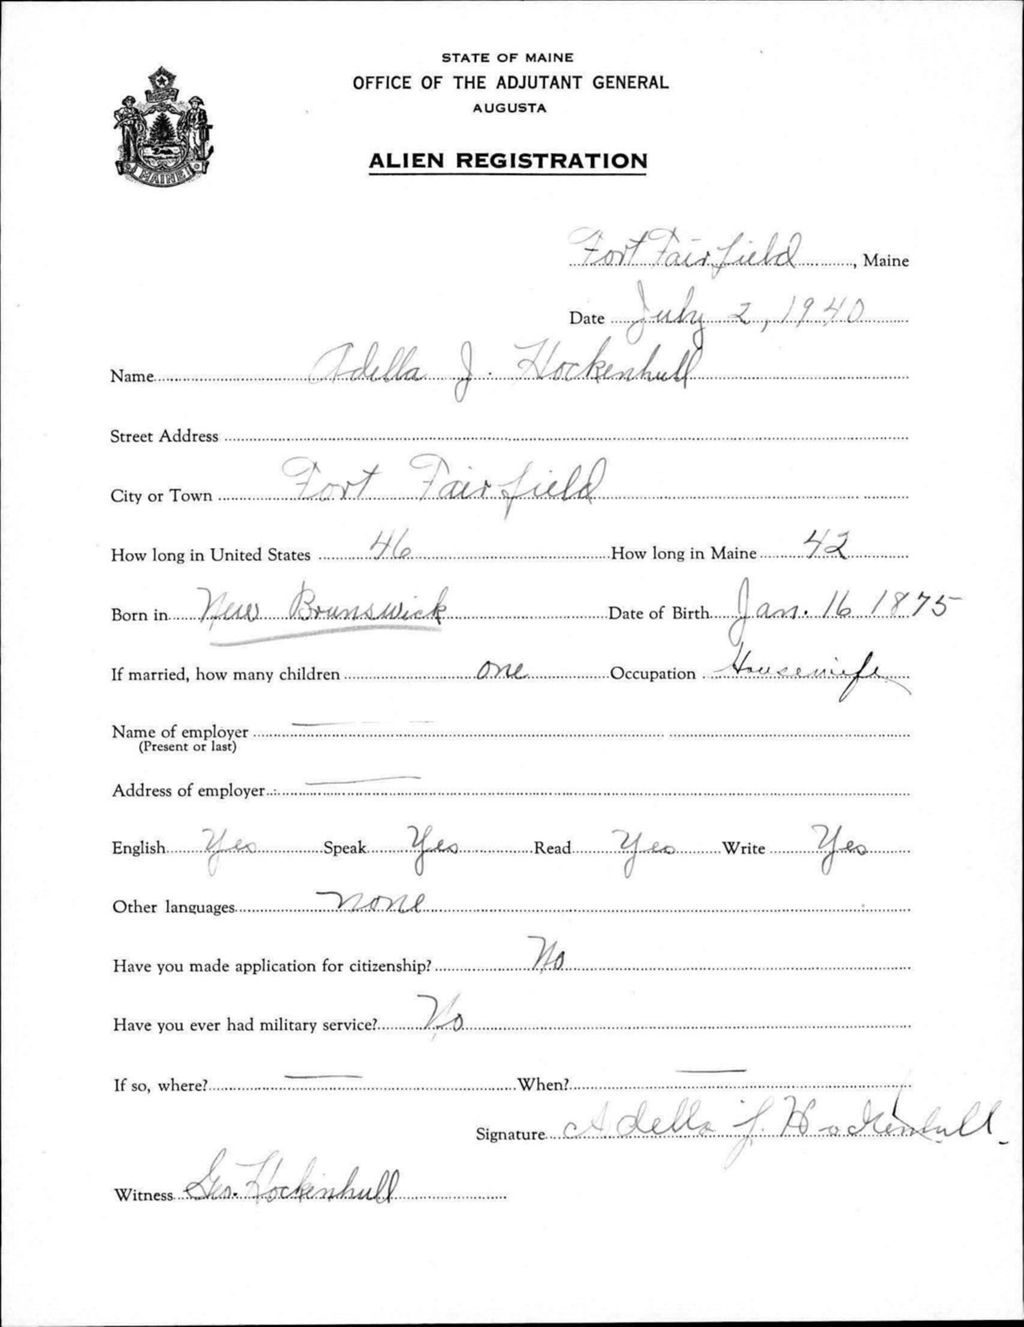 STATE OF MAINE
OFFICE OF THE ADJUTANT GENERAL
AUGUSTA
MAINE
ALIEN REGISTRATION
Fort Fairfield, Maine
Date July 2, 1940
Name Adella J. Hockenhull
Street Address
City or Town Fort Fairfield
How long in United States 46 How long in Maine 42
Born in New Brunswick Date of Birth Jan. 16 1875
If married, how many children one Occupation Housewife
Name of employer
(Present or last)
Address of employer
English Yes Speak Yes Read Yes Write Yes
Other languages none
Have you made application for citizenship? No
Have you ever had military service? No
If so, where? When?
Signature Adella J. Hockenhull
Witness Geo. Hockenhull